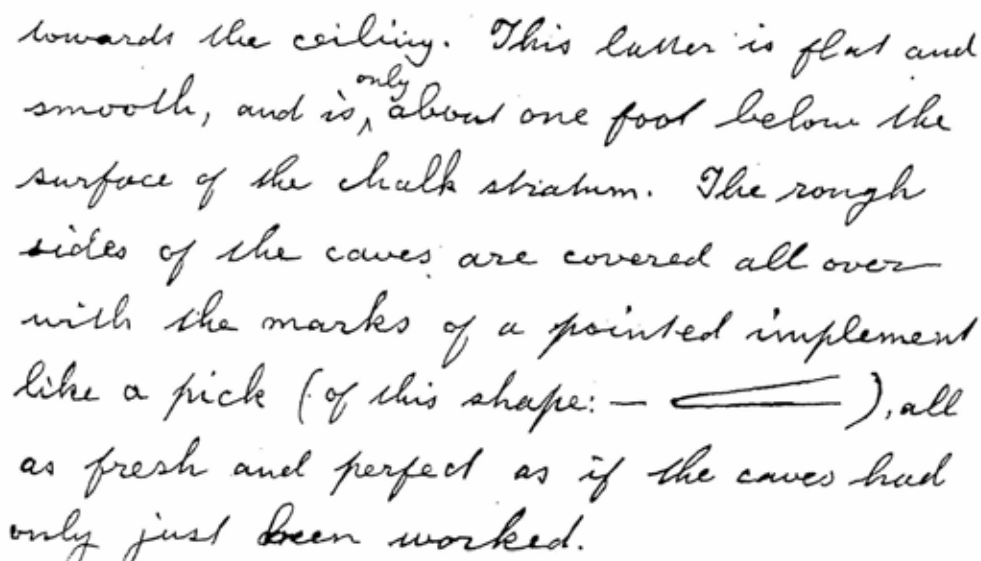 towards the ceiling. This latter is flat and
smooth, and is only about one foot below the
surface of the chalk stratum. The rough
sides of the caves are covered all over
with the marks of a pointed implement
like a pick (of this shape:— ), all
as fresh and perfect as if the caves had
only just been worked.